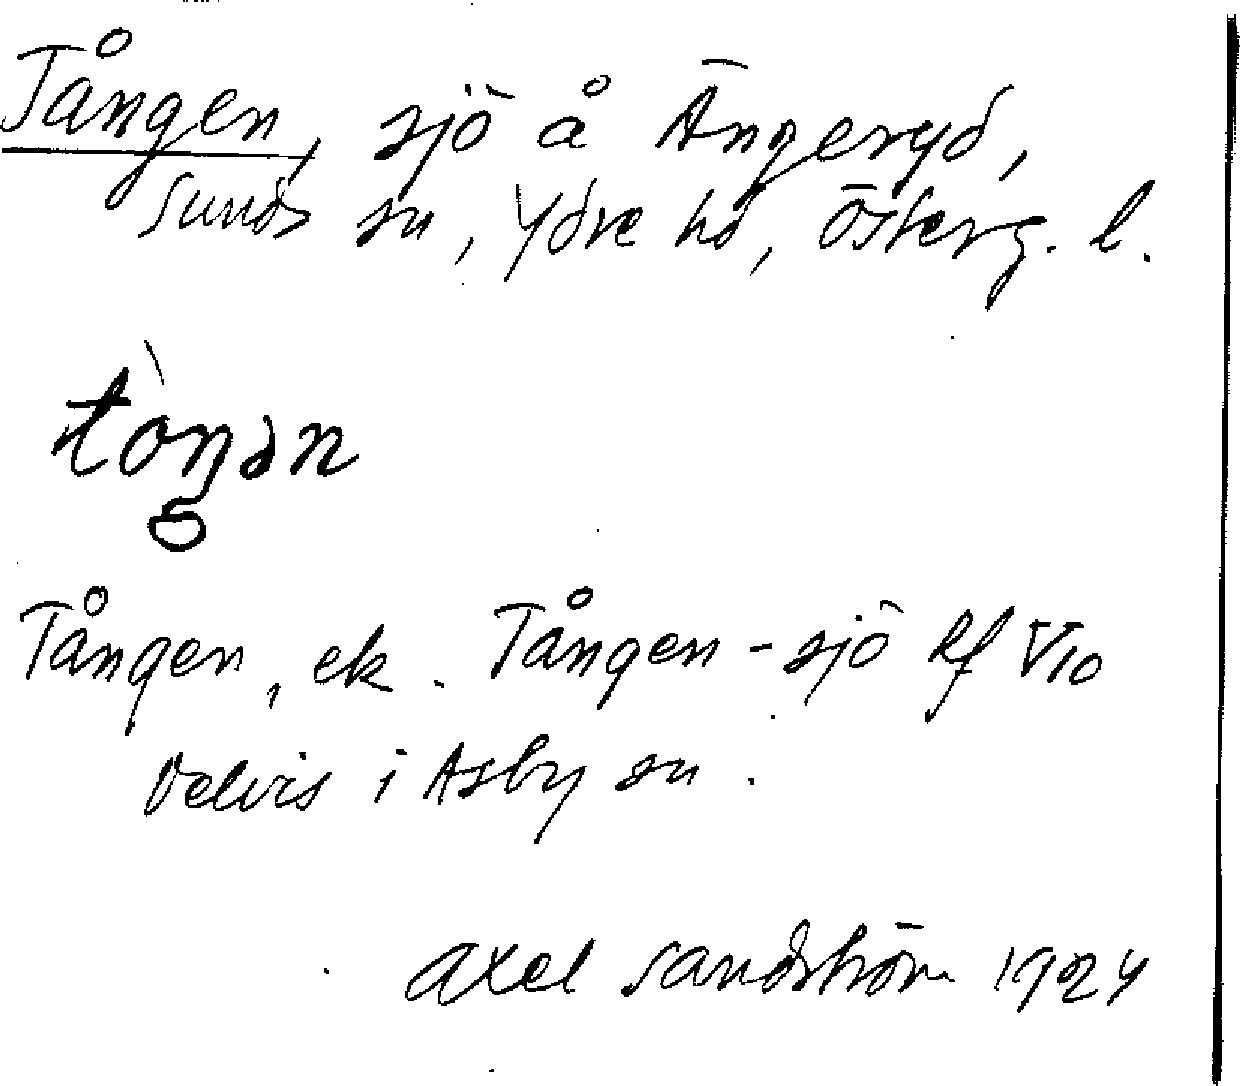 Tången, sjö å Ängeryd,
Sunds sn, Ydre hd, Österg. l.
tòŋən
Tången, ek. Tången-sjö Rf V 10
Delvis i Asby sn.
Axel Sandström 1924